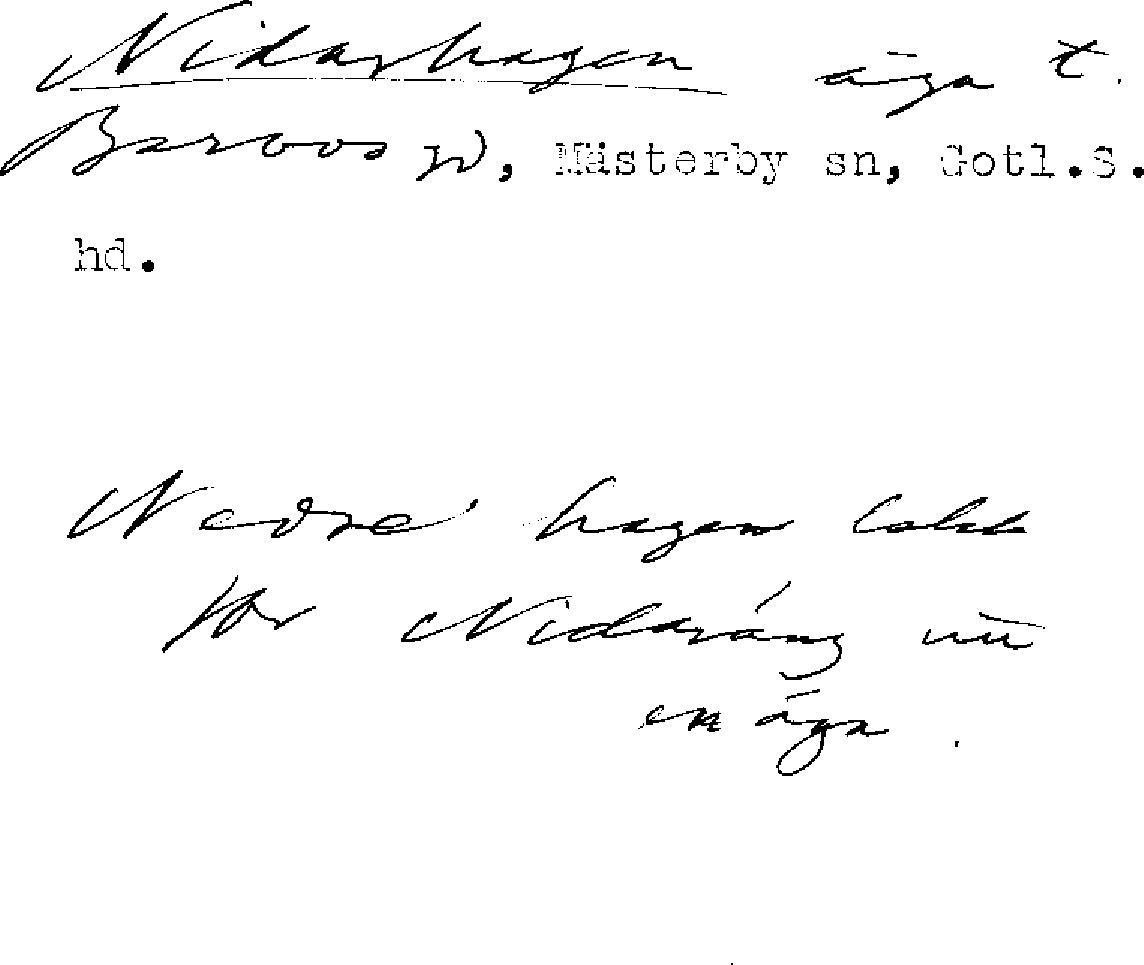 Nidarhagen äga t.
Barvos gd, Mästerby sn, Gotl.S.
hd.
Nedre hagen
för Nidaräng nu
en äga.